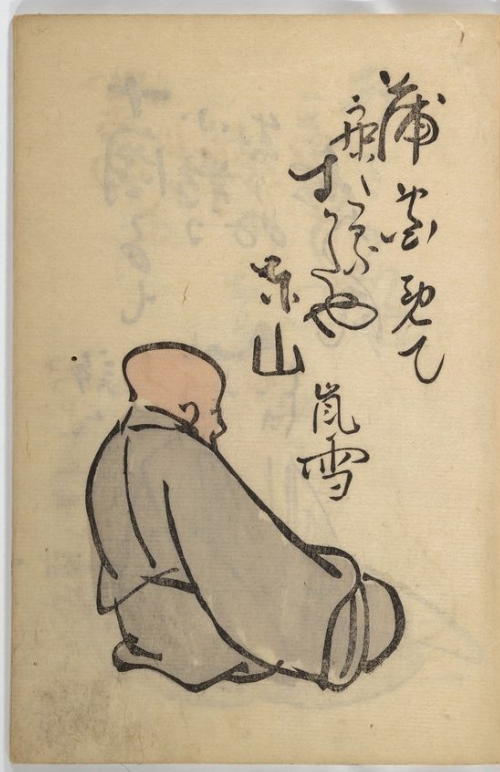 蒲団着て
寐たる
すかたや
東山
嵐雪